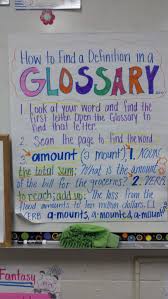 How to Find a Definition in a
GLOSSARY
1. Look at your word and find the
first letter. Open the Glossary to
find that letter.
2. Scan the page to find the word.
amount (a mount) 1. NOUN
the total sum: What is the amount
of the bill for the groceries? 2. VERB
to reach; add up: The loss from the
flood amounts to ten million dollars.
VERB a·mounts, a·mount·ed, a·mount
Fantasy